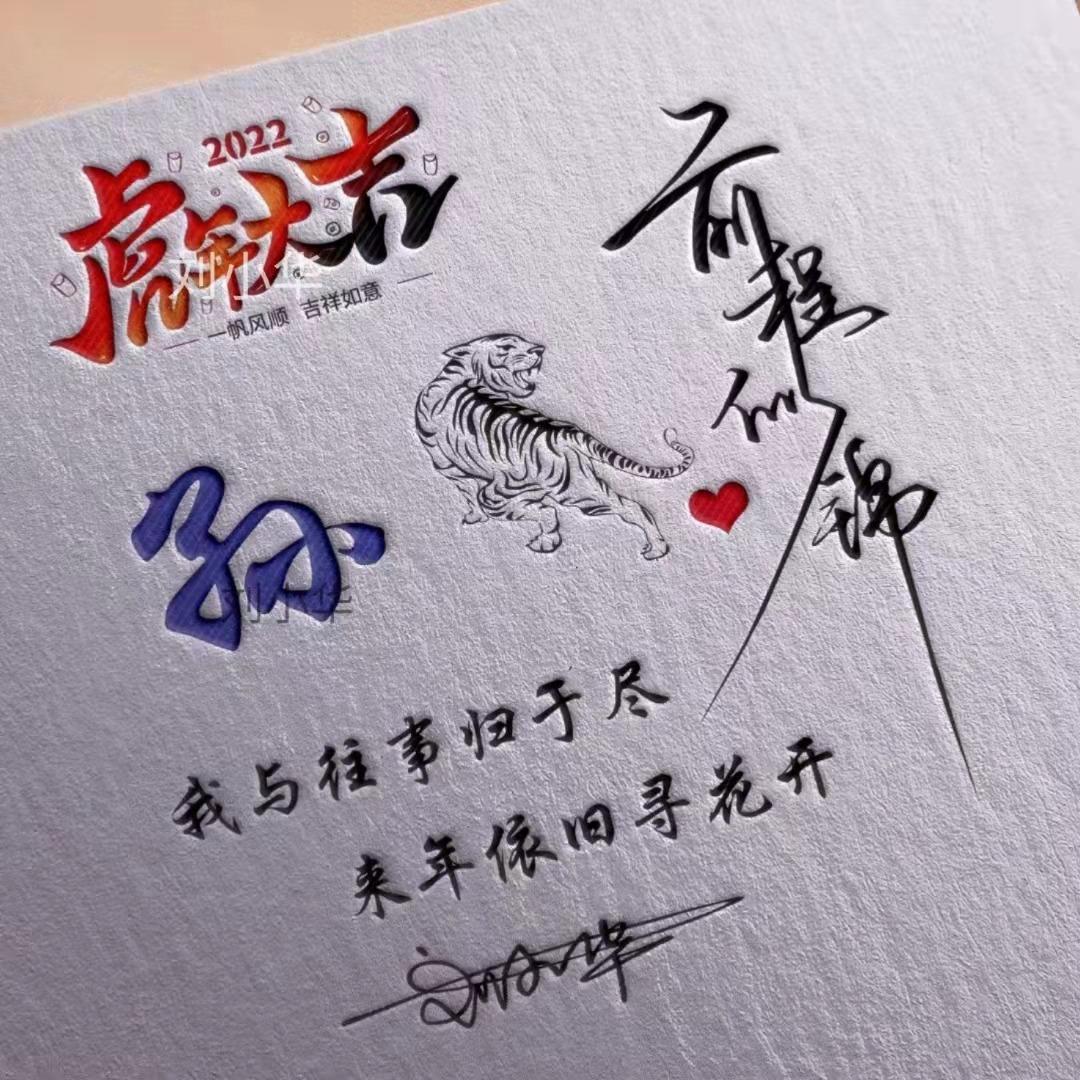 2022
虎年大吉
一帆风顺 吉祥如意
刘小华
前程似锦
孙
刘小华
我与往事归于尽
来年依旧寻花开
刘小华